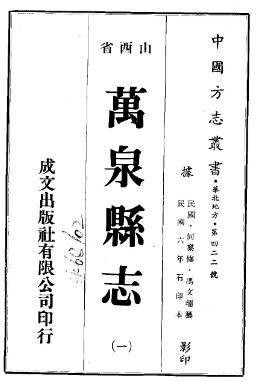 中國方志叢書·華北地方·第四二二號
據
民國·何燊修·馮文瑞纂
民國六年石印本
影印
山西省
萬泉縣志
(一)
成文出版社有限公司印行